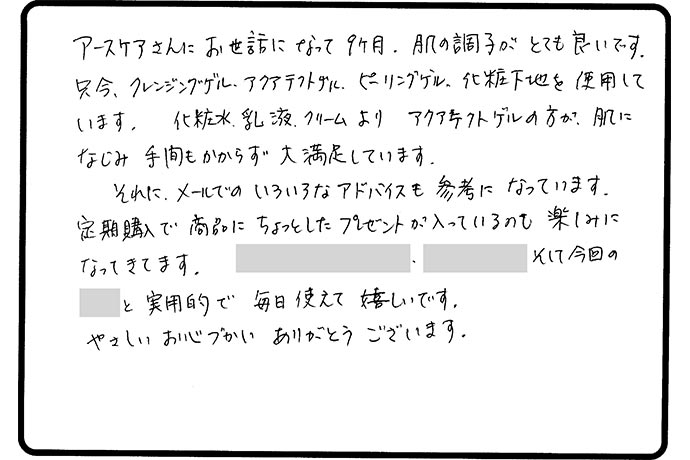 アースケアさんに お世話に なって 9ケ月. 肌の調子が とても 良いです.
只今、クレンジングゲル、アクアテクトゲル、ピーリングゲル、化粧下地を 使用して
います. 化粧水.乳液.クリームより アクアテクトゲルの方が、肌に
なじみ 手間もかからず 大満足しています.
それに、メールでの いろいろな アドバイスも 参考に なっています.
定期購入で 商品に ちょっとした プレゼントが 入っているのも 楽しみに
なってきてます. . そして今回の
と 実用的で 毎日 使えて 嬉しいです.
やさしい お心づかい ありがとう ございます.